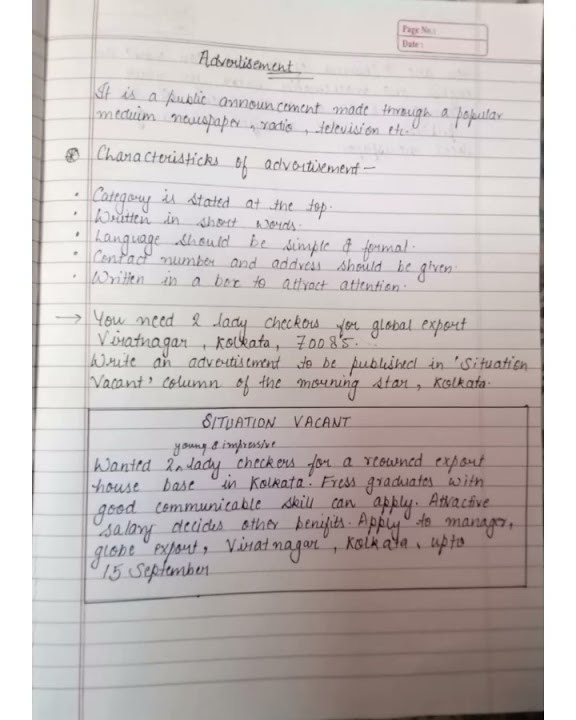 Page No.:
Date:
Advertisement
It is a public announcement made through a popular
meduim newspaper, radio, television etc.
Characteristicks of advertisement -
• Category is stated at the top.
• Written in short words.
• Language should be simple & formal.
• Contact number and address should be given.
• Written in a box to attract attention.
→ You need 2 lady checkers for global export
Viratnagar, Kolkata, 70085.
Write an advertisement to be published in 'Situation
Vacant' column of the morning star, Kolkata.
SITUATION VACANT
young & impressive
Wanted 2 lady checkers for a reowned export
house base in Kolkata. Fress graduates with
good communicable skill can apply. Attractive
salary decides other benifits. Apply to manager,
globe export, Viratnagar, Kolkata, upto
15 September